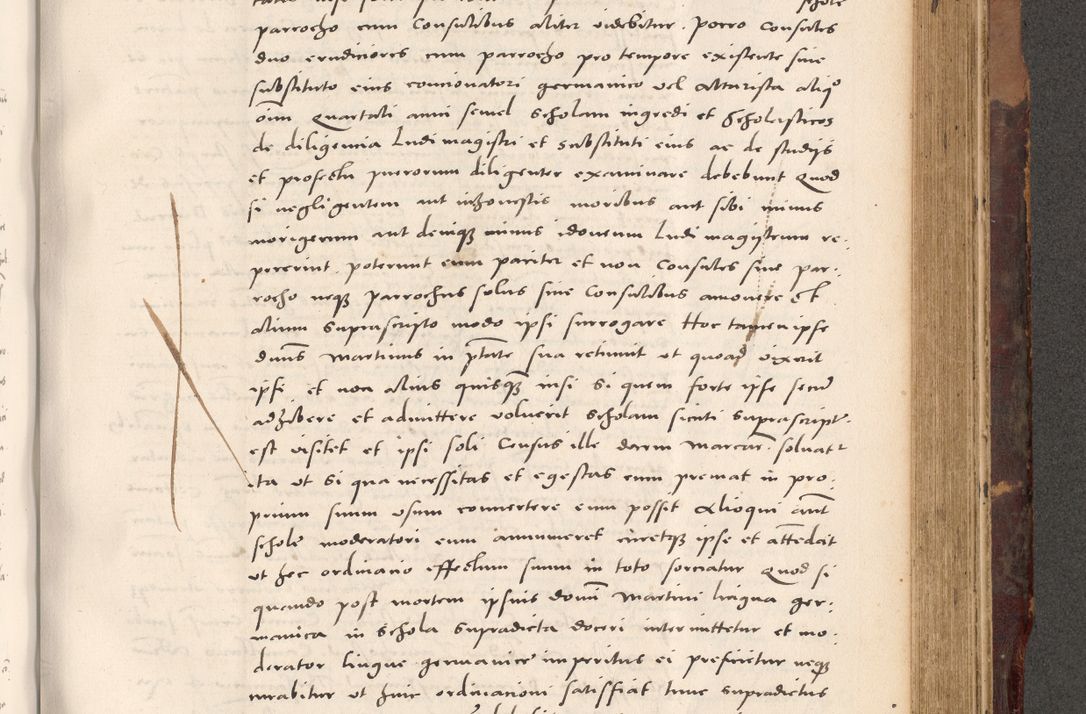 parrocho cum Consulibus aliter videbitur. Porro Consules
duo erudiciores cum parrocho pro tempore existente sive
substituto eius concionatori germanico vel altarista aliqo
oīm Quartali anni semel scholam ingredi et Scholasticos
de diligencia Ludi magistri et substituti eius ac de studijs
et profectu puerorum diligenter examinare debebunt Quod
si negligentem aut inhonestis moribus aut sibi minus
morigerum aut deniqz minus idoneum Ludi magistrum re-
pererint, poterunt eum pariter et non Consules sine par-
rocho neqz parrochus solus sine Consulibus amovere et
alium suprascripto modo ipsi surrogare Hoc tamen ipse
dnus Martinus in ptate sua retinuit ut quoad vixerit
ipse et non alius quisqz nisi si quem forte ipse secū
adhibere et admittere voluerit scholam sicuti suprascript
est visitet et ipsi soli Census ille darm marcar. solvatr
ita ut si qua necessitas et egestas eum premat in pro-
prium suum usum convertere eum possit Alioqui aut
schole moderatori eum annumeret curetqz ipse et attēdat
ut hec ordinatio effectum suum in toto sorciatur Quod si
quando post mortem ipsius domī Martini lingua ger-
manica in schola supradicta doceri intermittetur et mo-
derator lingue germanice imperitus ei preficietur neqz
curabitur ut huic ordinacioni satisfiat tunc supradictus